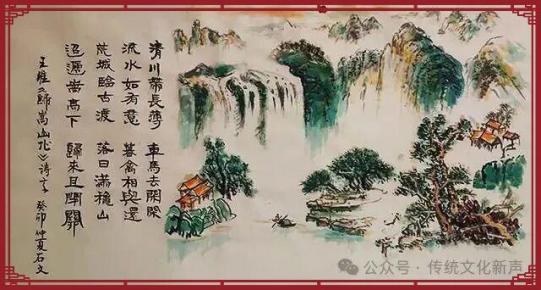 清川帶長薄 車馬去閒閒
流水如有意 暮禽相與還
荒城臨古渡 落日滿穐山
迢遞嵩高下 歸來且閉關
王維《歸嵩山作》诗 癸卯仲夏石文
公众号 · 传统文化新声